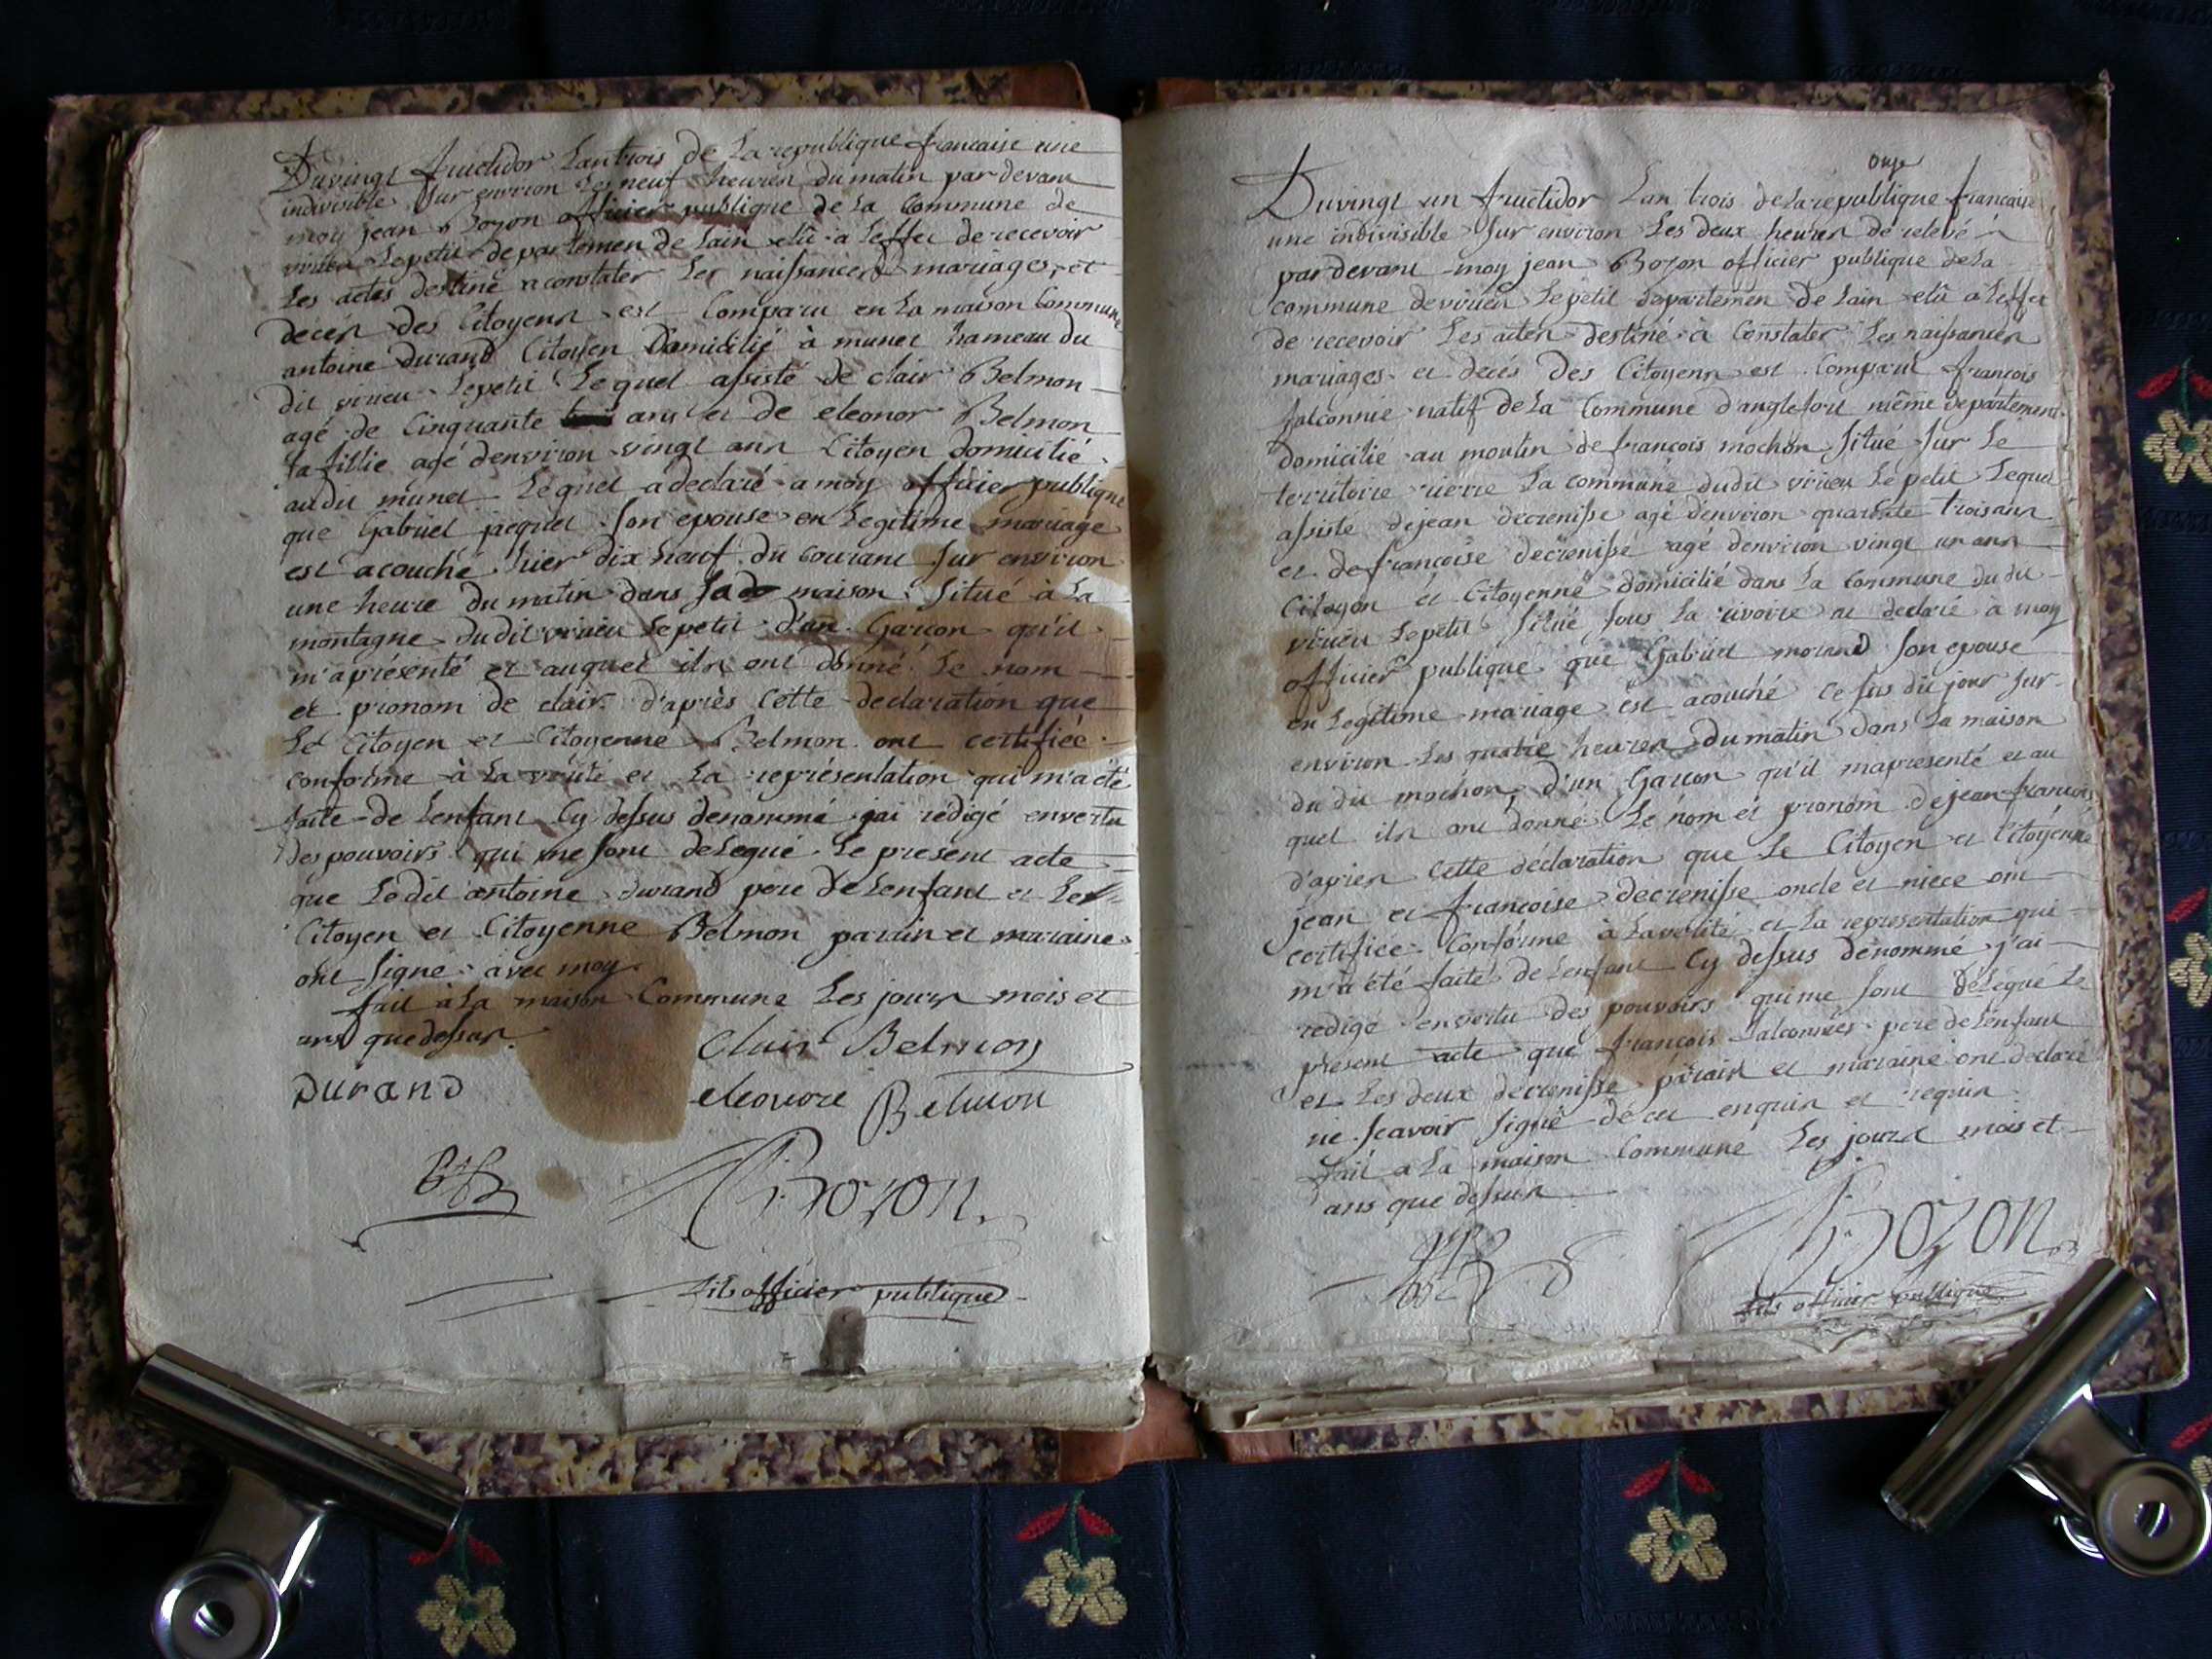 Du vingt fructidor Lan trois de La republique francaise une
indivisible Sur environ Les neuf heures du matin par devant
moy jean Bozon officier publique de La Commune de
virieu Le petit departemen de Lain elû a Leffet de recevoir
Les actes destiné a constater Les naissances mariages et
decés des Citoyens est Comparu en La maison Commune
antoine durand Citoyen Domicilié à munet hameau du
dit virieu Le petit Lequel assisté de clair Belmon
agé de Cinquante ans et de eleonor Belmon
sa fillie agé denviron vingt ans Citoyen domicilié
au dit munet Lequel a declaré a moy officier publique
que Gabriel jaquet Son epouse en Legitime mariage
est acouché hier dix neuf du courant Sur environ
une heure du matin dans Sa maison Situé à La
montagne du dit virieu Le petit d'un Garcon qu'il
m'a présenté et auquel ils ont donné Le nom
et pronom de clair d'après Cette declaration que
Le Citoyen et Citoyenne Belmon ont certifiée
conforme à La vérité et La représentation qui m'a été
faite de Lenfant Cy dessus denommé jai rédigé en vertu
des pouvoirs qui me sont delegué Le present acte
que Le dit antoine durand pere de Lenfant et Les
Citoyen et Citoyenne Belmon parain et maraine
ont Signé avec moy
fait à La maison Commune Les jours mois et
ans que dessus.
Clair Belmon
Durand eleonore Belmon
Bozon
officier publique
onze
Du vingt un fructidor Lan trois de La republique francaise
une indivisible Sur environ Les deux heures de relevé
par devant moy jean Bozon officier publique de La
commune de virieu Le petit departemen de Lain elû a Leffet
de recevoir Les actes destiné à Constater Les naissances
mariages et decés Des Citoyens est Comparu francois
falconnie natif de La Commune d'anglefort même departement
Domicilié au moulin de francois mochon Situé Sur Le
territoire rierre La commune du dit virieu Le petit Lequel
assisté de jean decrenisse agé d'environ quarante trois ans
et de francoise decrenisse agé d'environ vingt un ans
Citoyen et Citoyenne domicilié dans La Commune du dit
virieu Le petit Situé Sous La rivoire a declaré à moy
officier publique que Gabriel morand Son epouse
en Legitime mariage est acouché ce sus dit jour sur
environ Les quatre heures du matin dans La maison
du dit mochon d'un Garcon qu'il m'a presenté et au
quel ils ont donné Le nom et pronom de jean francois
d'apres Cette déclaration que Le Citoyen et Citoyenne
jean et francoise decrenisse oncle et niece ont
certifiée Conforme à La verité et La representation qui
m'a été faite de Lenfant Cy dessus dénommé j'ai
redigé en vertu des pouvoirs qui me sont délégué Le
present acte que francois falconnier pere de Lenfant
et Les deux decrenisse parain et maraine ont declaré
ne scavoir Signé de ce enquis et requis
fait a La maison Commune Les jours mois et
ans que dessus
Bozon
fils officier publique